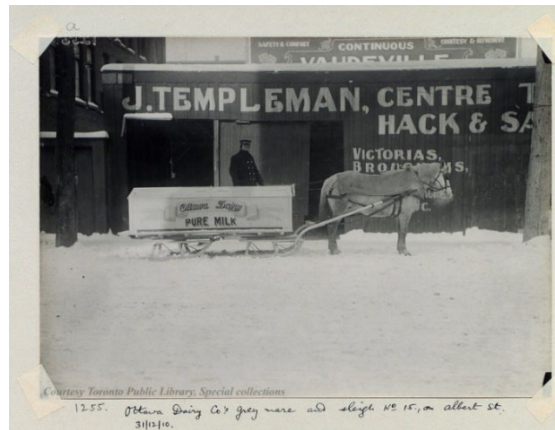 a
SAFETY & COMFORT
CONTINUOUS
COURTESY & REFINEMENT
VAUDEVILLE
J. TEMPLEMAN, CENTRE T
HACK & SA
VICTORIAS,
BROUGHAMS,
Ottawa Dairy
PURE MILK
Courtesy Toronto Public Library. Special collections
1255. Ottawa Dairy Co's grey mare and sleigh No 15, on albert St.
31/12/10.